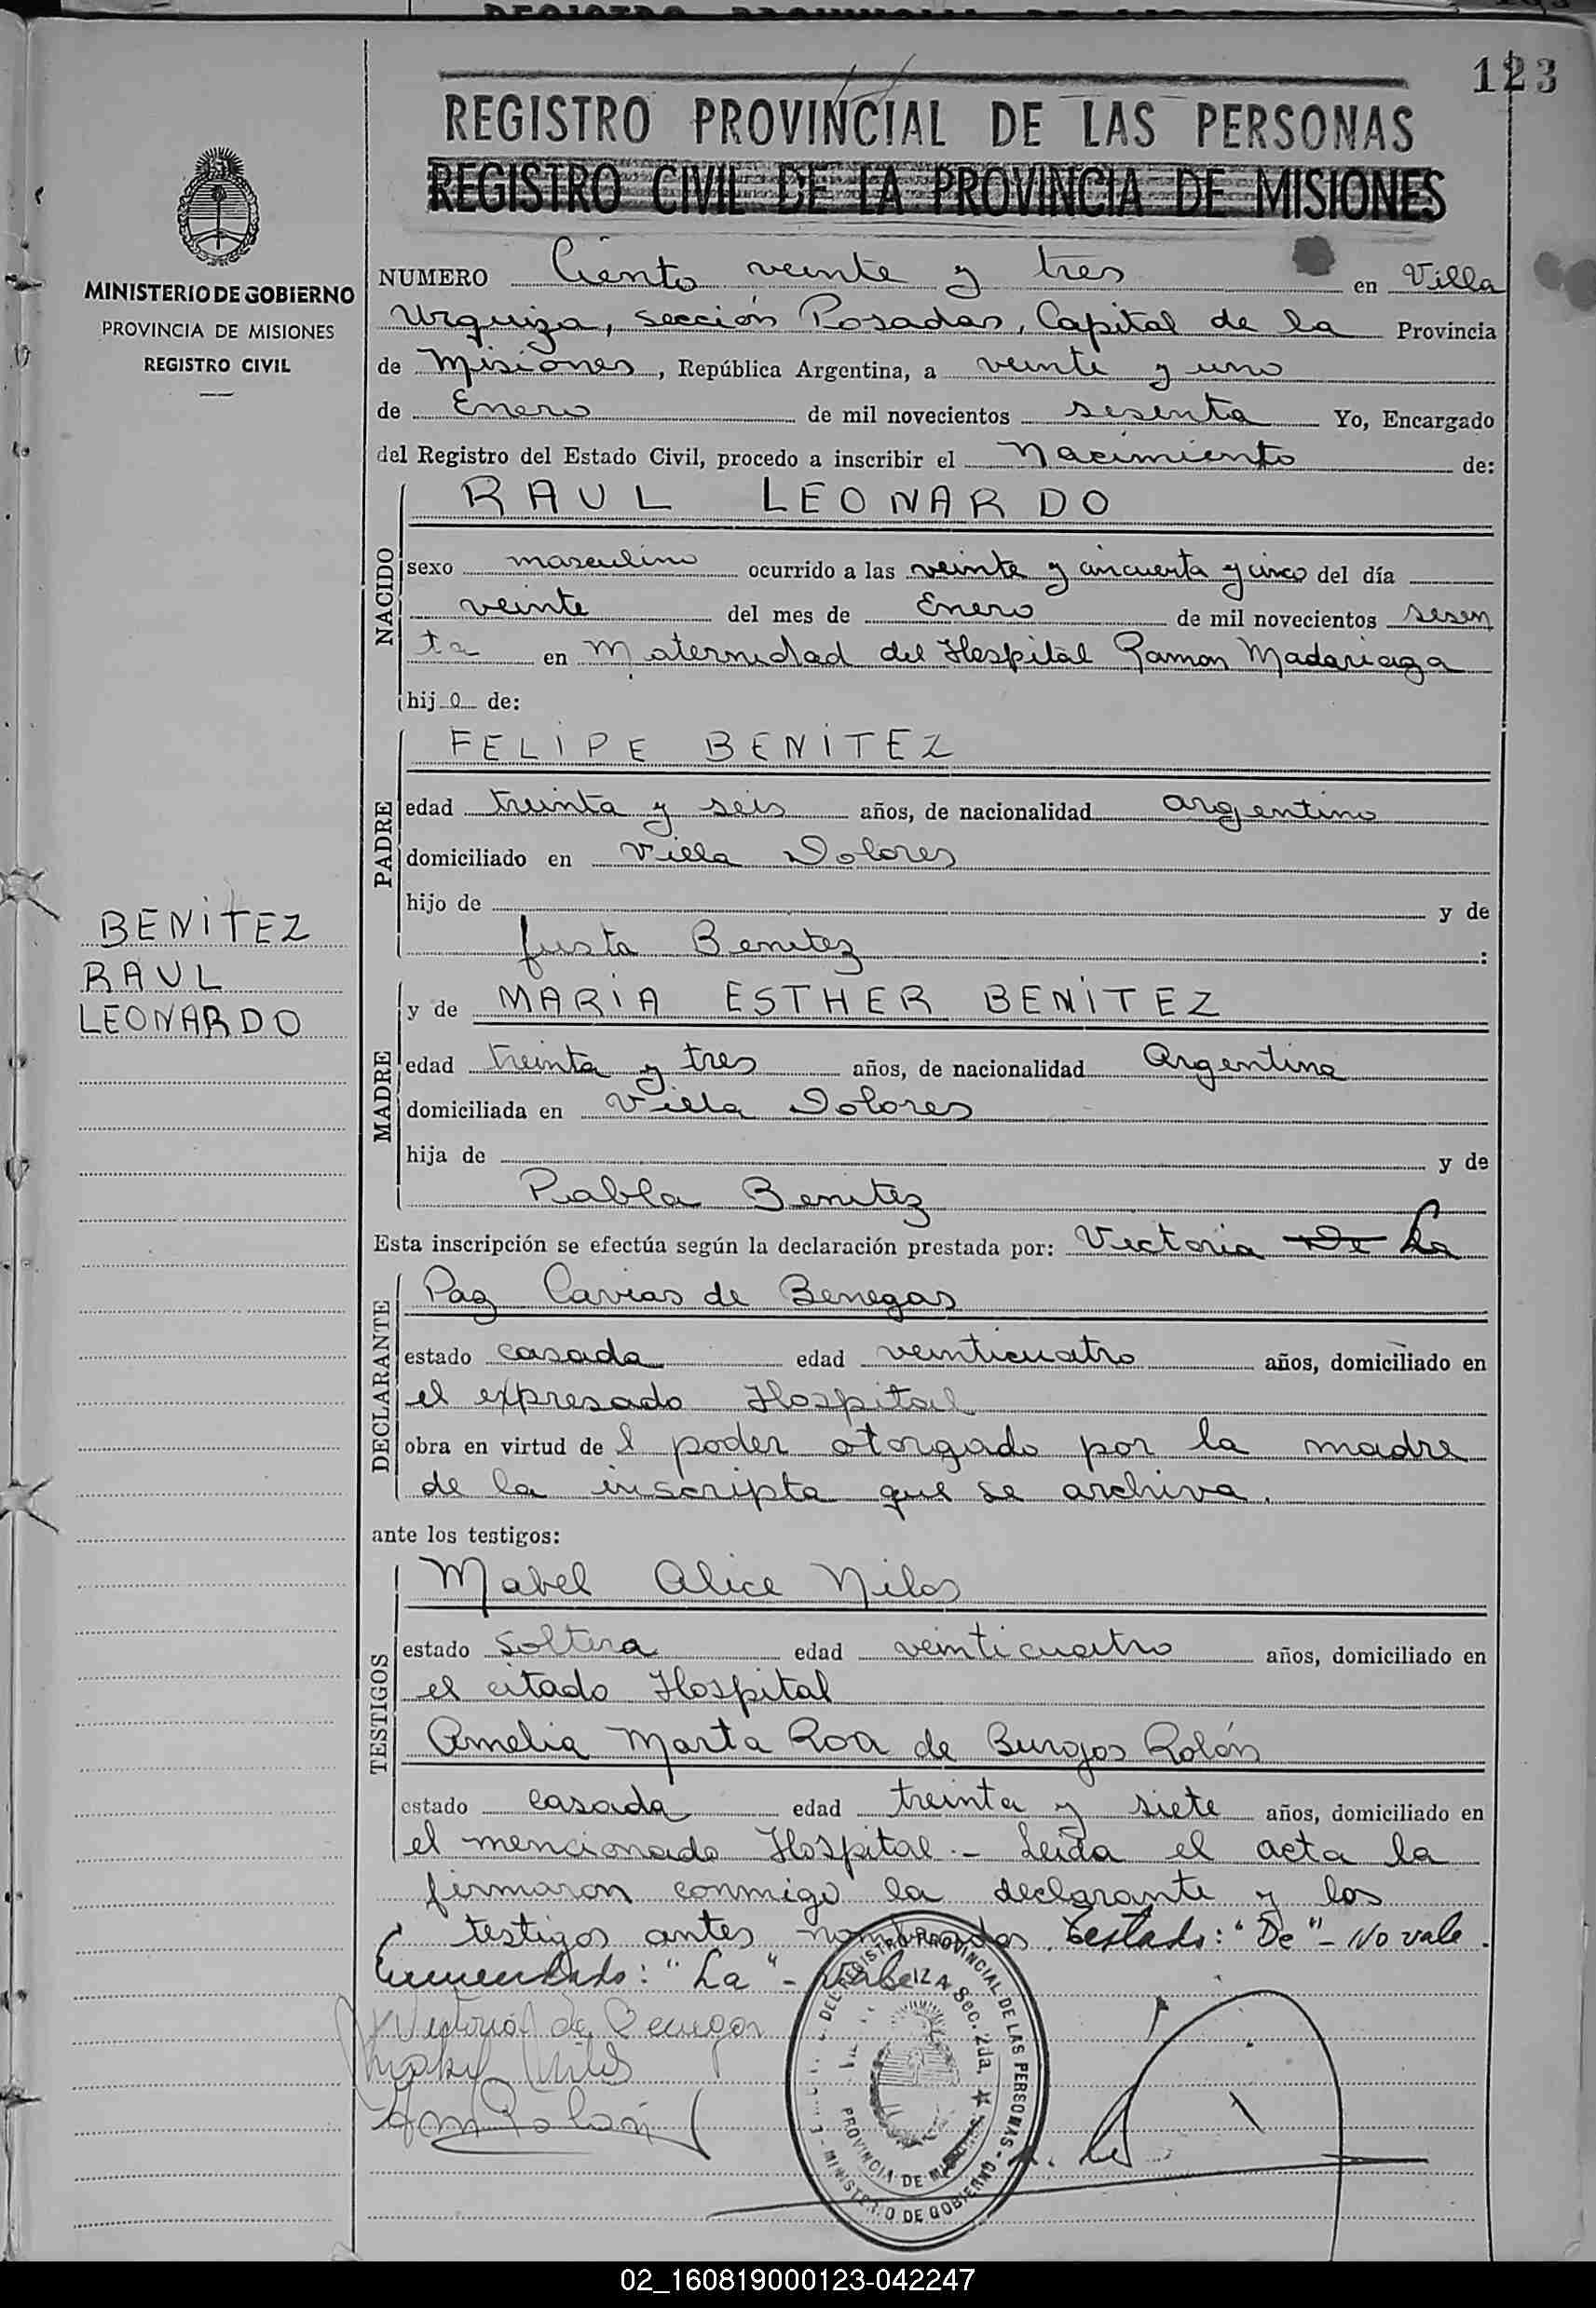 123
REGISTRO PROVINCIAL DE LAS PERSONAS
REGISTRO CIVIL DE LA PROVINCIA DE MISIONES
MINISTERIO DE GOBIERNO
PROVINCIA DE MISIONES
REGISTRO CIVIL
NUMERO Ciento veinte y tres en Villa
Urquiza, sección Posadas, Capital de la Provincia
de Misiones, República Argentina, a veinte y uno
de Enero de mil novecientos sesenta Yo, Encargado
del Registro del Estado Civil, procedo a inscribir el Nacimiento de:
RAUL LEONARDO
NACIDO
sexo masculino ocurrido a las veinte y cincuenta y cinco del día
veinte del mes de Enero de mil novecientos sesen
ta en Maternidad del Hospital Ramon Madariaga
hijo de:
FELIPE BENITEZ
PADRE
edad treinta y seis años, de nacionalidad argentino
domiciliado en Villa Dolores
hijo de y de
Justa Benitez :
BENITEZ
RAUL
LEONARDO
y de MARIA ESTHER BENITEZ
MADRE
edad treinta y tres años, de nacionalidad Argentina
domiciliada en Villa Dolores
hija de y de
Pabla Benitez
Esta inscripción se efectúa según la declaración prestada por: Victoria De La
DECLARANTE
Paz Cavias de Benegas
estado casada edad veinticuatro años, domiciliado en
el expresado Hospital
obra en virtud de l poder otorgado por la madre
de la inscripta que se archiva.
ante los testigos:
TESTIGOS
Mabel Alice Nilos
estado soltera edad veinticuatro años, domiciliado en
el citado Hospital
Amelia Marta Roa de Burgos Rolón
estado casada edad treinta y siete años, domiciliado en
el mencionado Hospital.- Leída el acta la
firmaron conmigo la declarante y los
testigos antes nombrados. Testado: "De" - No vale.
Enmendado: "La" - Vale
Victoria de Benegas
DEL REGISTRO PROVINCIAL DE LAS PERSONAS - MINISTERIO DE GOBIERNO
IZA Sec. 2da.
PROVINCIA DE MISIONES
02_160819000123-042247